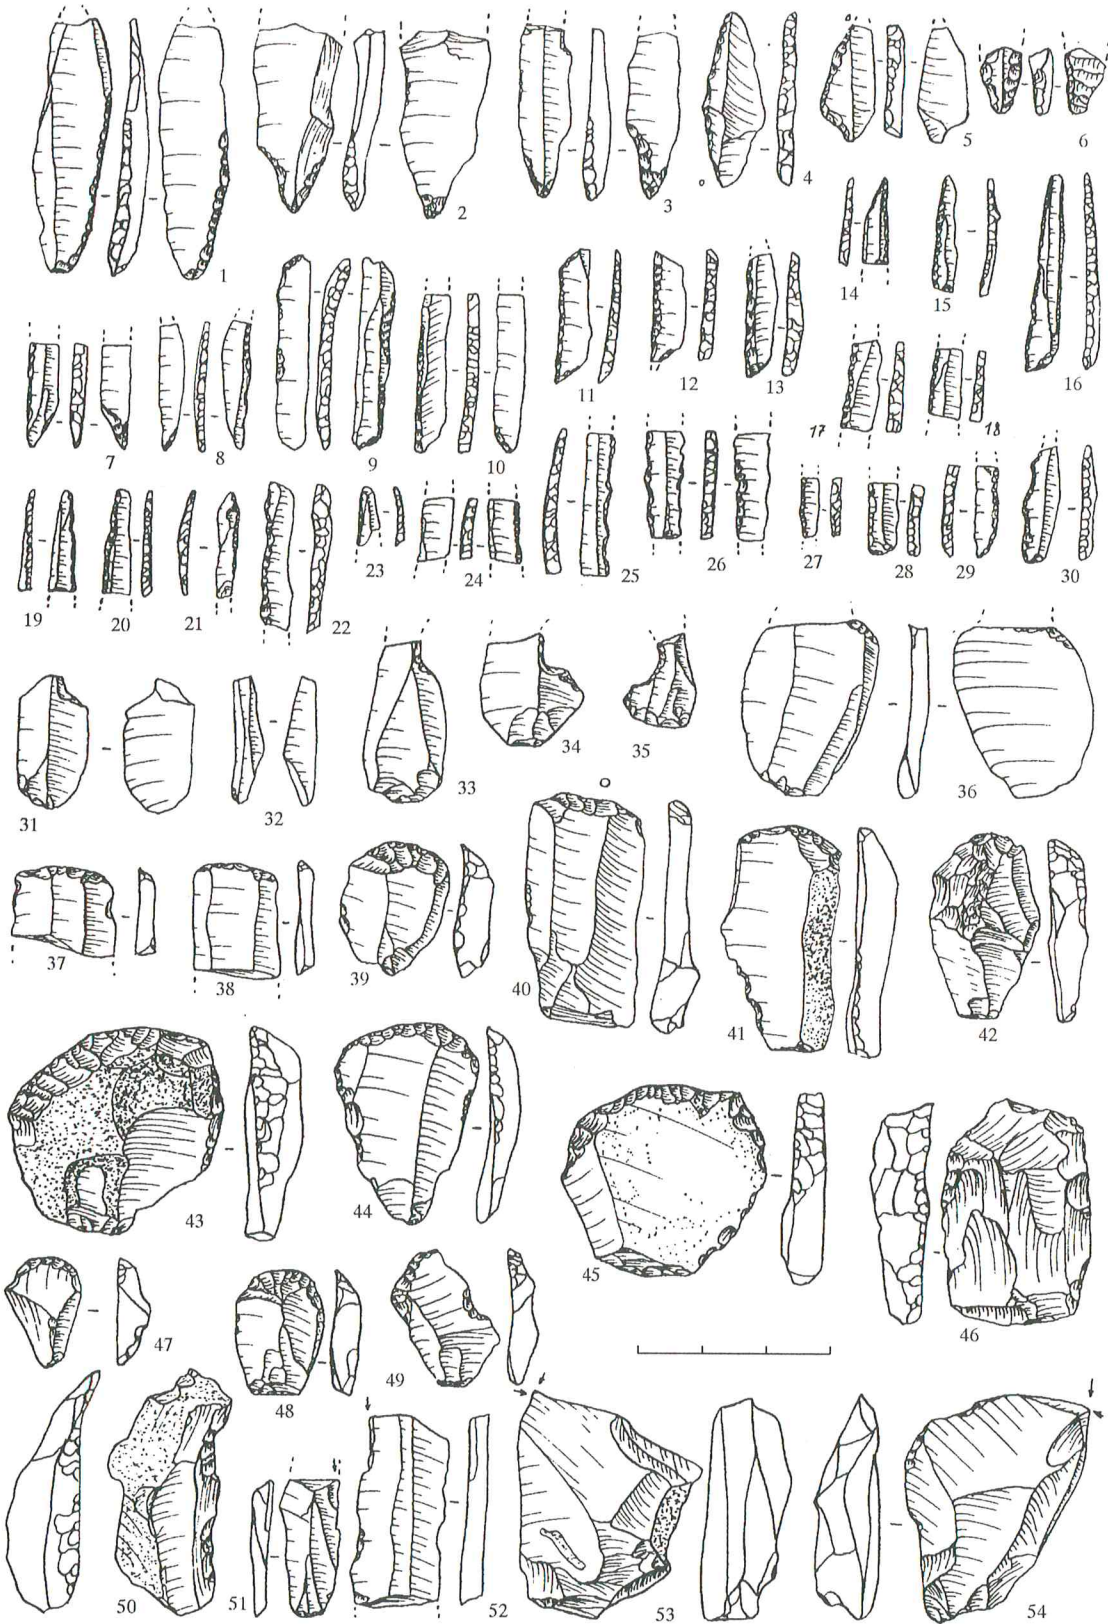 1
2
3
4
5
6
7
8
9
10
11
12
13
14
15
16
17
18
19
20
21
22
23
24
25
26
27
28
29
30
31
32
33
34
35
36
37
38
39
40
41
42
43
44
45
46
47
48
49
50
51
52
53
54